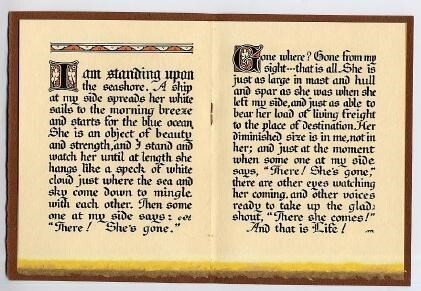 I am standing upon
the seashore. A ship
at my side spreads her white
sails to the morning breeze
and starts for the blue ocean.
She is an object of beauty
and strength, and I stand and
watch her until at length she
hangs like a speck of white
cloud just where the sea and
sky come down to mingle
with each other. Then some
one at my side says:
"There! She's gone."
Gone where? Gone from my
sight---that is all. She is
just as large in mast and hull
and spar as she was when she
left my side, and just as able to
bear her load of living freight
to the place of destination. Her
diminished size is in me, not in
her; and just at the moment
when some one at my side
says, "There! She's gone,"
there are other eyes watching
her coming, and other voices
ready to take up the glad
shout, "There she comes!"
And that is Life!